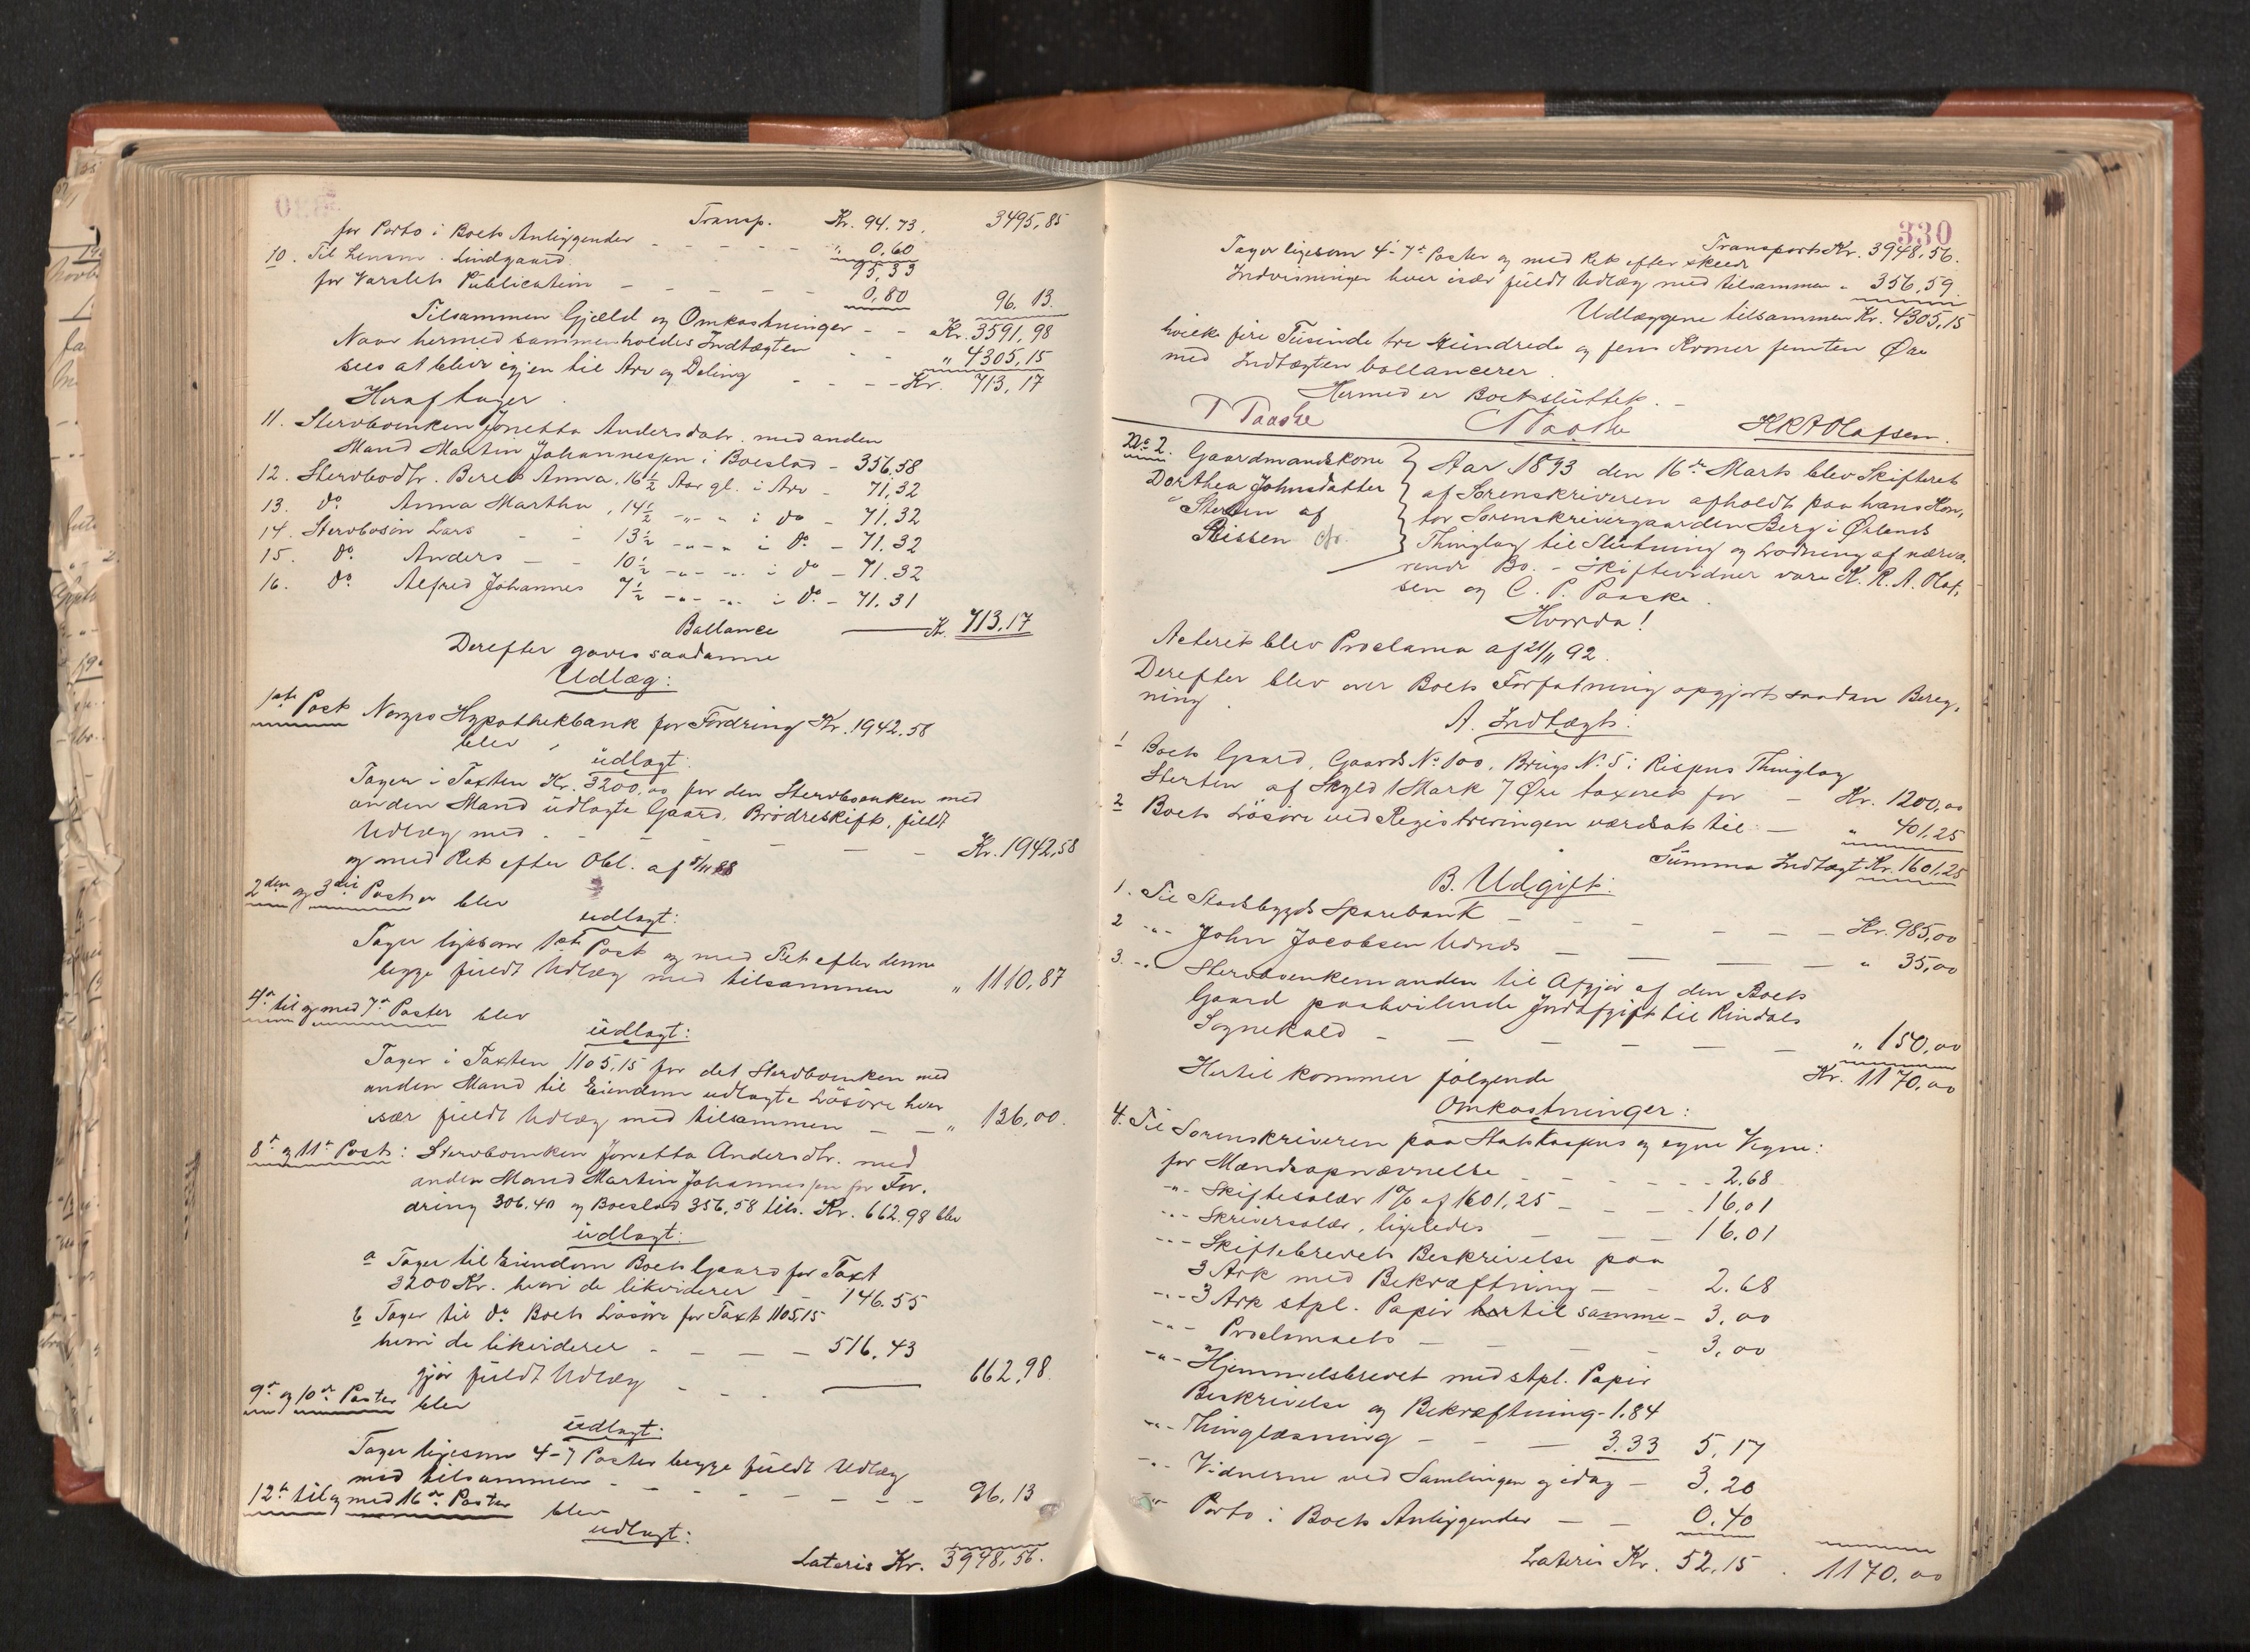 Transp. Kr. 94.73. 3495,85
for Porto i Boets Anliggender - - - - - " 0,60
10. Til Lensm. Lindgaard 95,33
for Varslets Publication - - - - - 0,80 96.13.
Tilsammen Gjæld og Omkostninger - - Kr. 3591,98
Naar hermed sammenholdes Indtægten - - " 4305,15
sees at blive igjen til Arv og Deling - - - - Kr. 713,17
Heraf tager.
11. Stervboenken Jonetta Andersdatr. med anden
Mand Martin Johannessen i Boeslod - 356,58
12. Stervbodtr. Beret Anna, 16½ Aar gl. i Arv - 71,32
13. do. Anna Martha, 14½ -"- " i do - 71.32
14. Stervbosøn Lars - - 13½ -"-"- i do. - 71.32
15. do. Anders - - 10½ -"- -"- i do - 71.32
16. do. Alfred Johannes 7½ -"- -"- i do. - 71.31
Ballance — Kr. 713,17
Derefter gaves saadanne
Udlæg:
1ste Post Norges Hypothekbank for Fordring Kr. 1942.58
blev
udlagt:
Tager i Taxten Kr. 3200,00 for den Stervboenken med
anden Mand udlagte Gaard, Brødreskift, fuldt
Udlæg med - - - - - - Kr. 1942,58
og med Ret efter Obl. af 5/11 88
2den og 3die Poster blev
udlagt:
Tager ligesom 1ste Post og med Ret efter denne
begge fuldt Udlæg med tilsammen " 1110,87
4de til og med 7de Poster blev
udlagt:
Tager i Taxten 1105,15 for det Stervboenken med
anden Mand til Eiendom udlagte Løsøre hver
især fuldt Udlæg med tilsammen - - " 136,00.
8de og 11te Post: Stervboenken Jonetta Andersdtr. med
anden Mand Martin Johannessen for For-
dring 306.40 og Boeslod 356,58 tils. Kr. 662.98 blev
udlagt:
a Tager til Eiendom Boets Gaard for Taxt
3200 Kr. hvori de likviderer - - 146.55
b Tager til do. Boets Løsøre for Taxt 1105,15
hvori de likviderer - - - - 516.43
gjør fuldt Udlæg - - - 662,98.
9de og 10de Poster blev
udlagt:
Tager ligesom 4-7 Poster begge fuldt Udlæg
med tilsammen - - - - - - - 96.13
12te til og med 16de Poster blev
udlagt:
Lateris Kr. 3948,56.
330
Transport Kr. 3948,56.
Tager ligesom 4-7de Poster og med Ret efter skeede
Indvisninger hver især fuldt Udlæg med tilsammen " 356,59.
Udlæggene tilsammen Kr. 4305,15
hvilke fire Tusinde tre Hundrede og fem Kroner femten Øre
med Indtægten ballancerer.
Hermed er Boet sluttet. -
P Paaske KRAOlafsen.
No 2. Gaardmandskone
Dorthea Johnsdatter
Sterten af
Rissen
Aar 1893 den 16de Marts blev Skifteret
af Sorenskriveren afholdt paa hans Kon-
tor Sorenskrivergaarden Berg i Ørlands
Thinglag til Slutning og Lodning af nærvæ-
rende Bo. - Skiftevidner vare K. R. A. Olaf-
sen og C. P. Paaske.
Hvorda!
Acteret blev Proclama af 21/11 92.
Derefter blev over Boets Forfatning opgjort saadan Bereg-
ning.
A. Indtægt:
1 Boets Gaard, Gaards No 100, Brugs No. 5 i Rissens Thinglag
Sterten af Skyld 1 Mark 7 Øre taxeret for - Kr. 1200,00
2 Boets Løsøre ved Registreringen værdsat til - " 401.25
Summa Indtægt Kr. 1601,25
B. Udgift:
1. Til Stadsbygds Sparebank - - - - - Kr. 985,00
2 -"- John Jacobsen - - - - " 35,00
3. -"- Stervboenkemanden til Afgjør af den Boets
Gaard paahvilende Jordafgift til Rindals
Sognekald - - - - - - " 150,00
Kr. 1170,00
Hertil kommer følgende
Omkostninger:
4. Til Sorenskriveren paa Statskassens og egne Vegne:
for Mændsopnævnelse - - - - - - 2.68
-"- Skiftesalær 1% af 1601,25 - - - - 16,01
-"- Skriversalær, ligeledes - - - 16.01
-"- Skiftebrevets Beskrivelse paa
3 Ark med Bekræftning - - 2.68
-"- 3 Ark stpl. Papir hertil samme - 3,00
-"- Proclamaets - - - - 3,00
-"- Hjemmelsbrevet med stpl. Papir
Beskrivelse og Bekræftning - 1.84
-"- Thinglæsning - - - 3.33 5,17
-"- Vidnerne ved Samlingen og idag - 3.20
-"- Porto i Boets Anliggender - - 0.40
Lateris Kr. 52,15. 1170,00